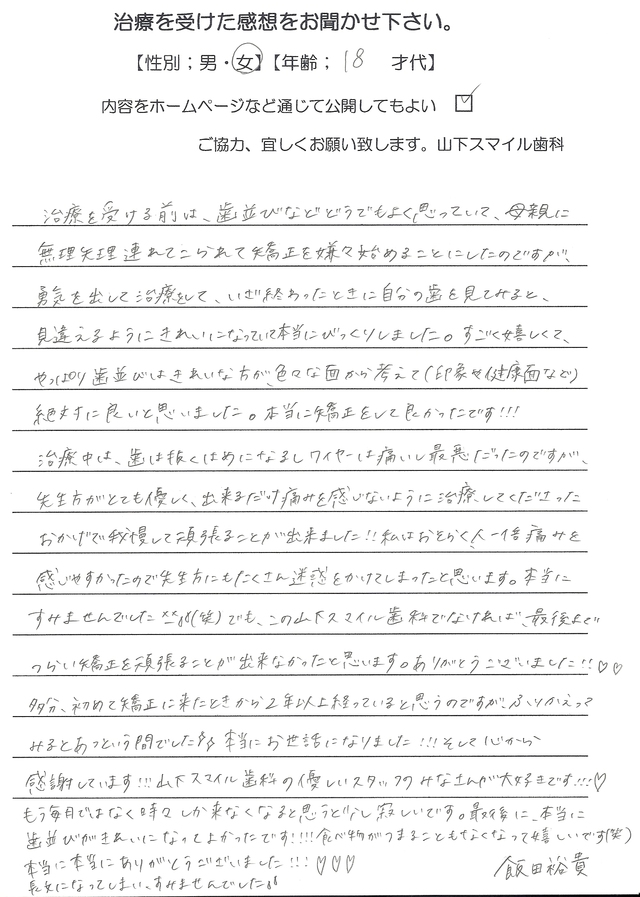 治療を受けた感想をお聞かせ下さい。
【性別；男・女】【年齢；18 才代】
内容をホームページなど通じて公開してもよい ☑
ご協力、宜しくお願い致します。山下スマイル歯科
治療を受ける前は、歯並びなどどうでもよく思っていて、母親に
無理矢理連れてこられて矯正を嫌々始めることにしたのですが、
勇気を出して治療をして、いざ終わったときに自分の歯を見てみると、
見違えるようにきれいになっていて本当にびっくりしました。すごく嬉しくて、
やっぱり歯並びはきれいな方が、色々な面から考えて(印象や健康面など)
絶対に良いと思いました。本当に矯正をして良かったです!!!
治療中は、歯は抜くはめになるしワイヤーは痛いし最悪だったのですが、
先生方がとても優しく、出来るだけ痛みを感じないように治療してくださった
おかげで我慢して頑張ることが出来ました!!私はおそらく人一倍痛みを
感じやすかったので先生方にもたくさん迷惑をかけてしまったと思います。本当に
すみませんでした(笑)でも、この山下スマイル歯科でなければ、最後まで
つらい矯正を頑張ることが出来なかったと思います。ありがとうございました!!♡♡
多分、初めて矯正に来たときから2年以上経っていると思うのですが、ふりかえって
みるとあっという間でした 本当にお世話になりました!!!そして心から
感謝しています!!!山下スマイル歯科の優しいスタッフのみなさんが大好きです!!!♡
もう毎月ではなく時々しか来なくなると思うと少し寂しいです。最後に、本当に
歯並びがきれいになってよかったです!!!!食べ物がつまることもなくなって嬉しいです(笑)
本当に本当にありがとうございました!!!♡♡♡ 飯田裕貴
長文になってしまい、すみませんでした